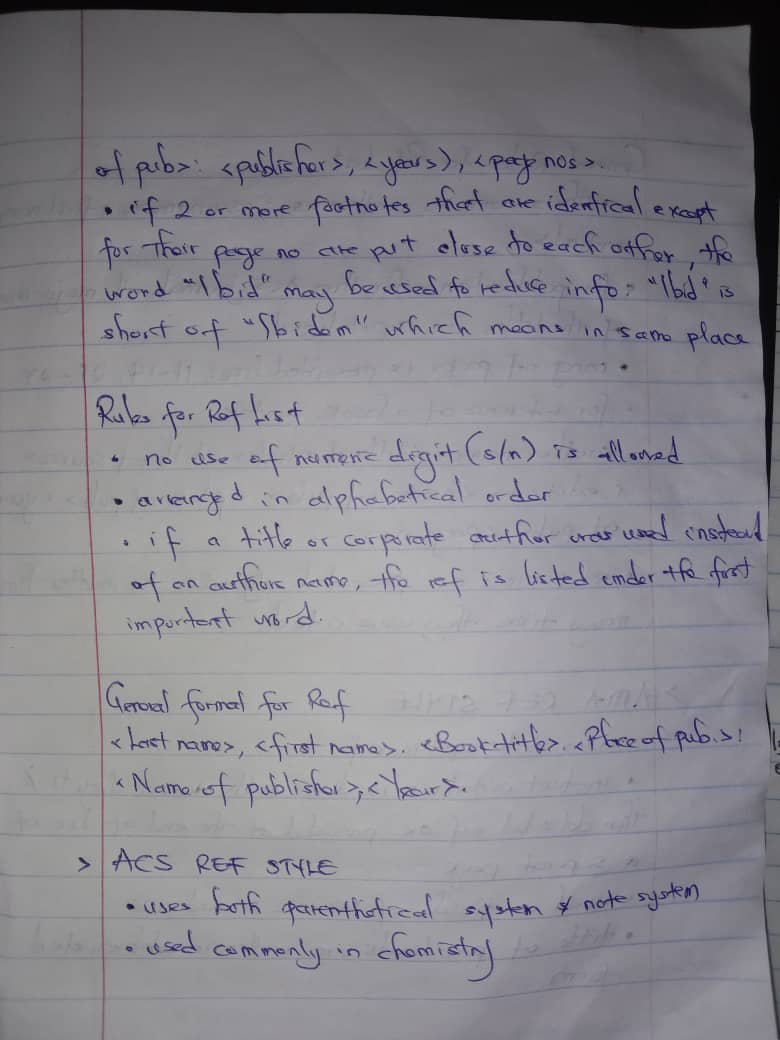 of pub>: <publisher>, <years), <page nos>.
• if 2 or more footnotes that are identical except
for their page no are put close to each other, the
word "Ibid" may be used to reduce info: "Ibid" is
short of "Ibidem" which means in same place
.
Rules for Ref List
• no use of numeric digit (s/n) is allowed
• arranged in alphabetical order
• if a title or corporate author was used instead
of an authors name, the ref is listed under the first
important word.
General format for Ref
<Last name>, <first name>. <Book title>. <Place of pub.>:
<Name of publisher>, <Year>.
> ACS REF STYLE
• uses both parenthetical system & note system
• used commonly in chemistry